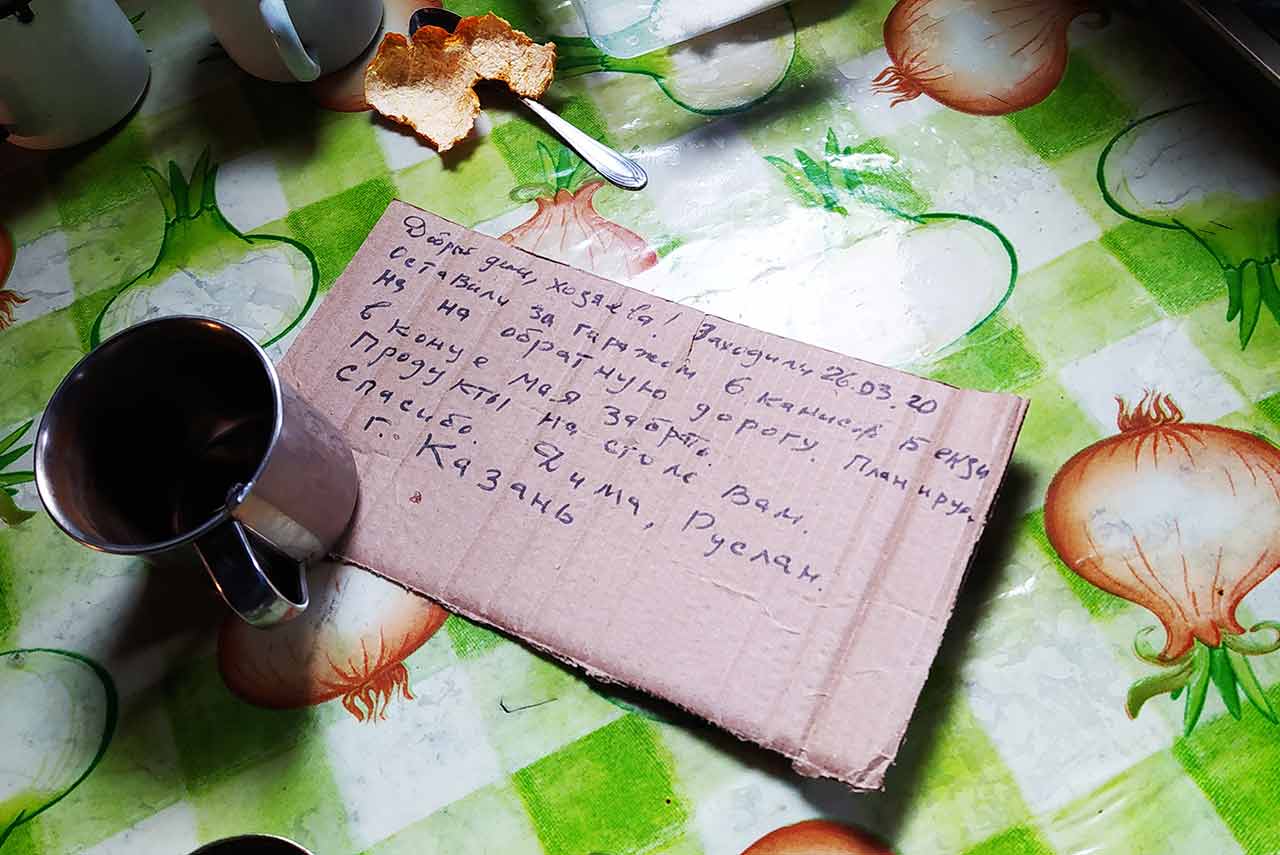 Добрый день, хозяева! Заходили 26.03.20
оставили за гаражом 6 канистр бензи
на на обратную дорогу. Планируем
в конце мая забрать.
Продукты на столе Вам.
спасибо. Дима, Руслан.
г. Казань